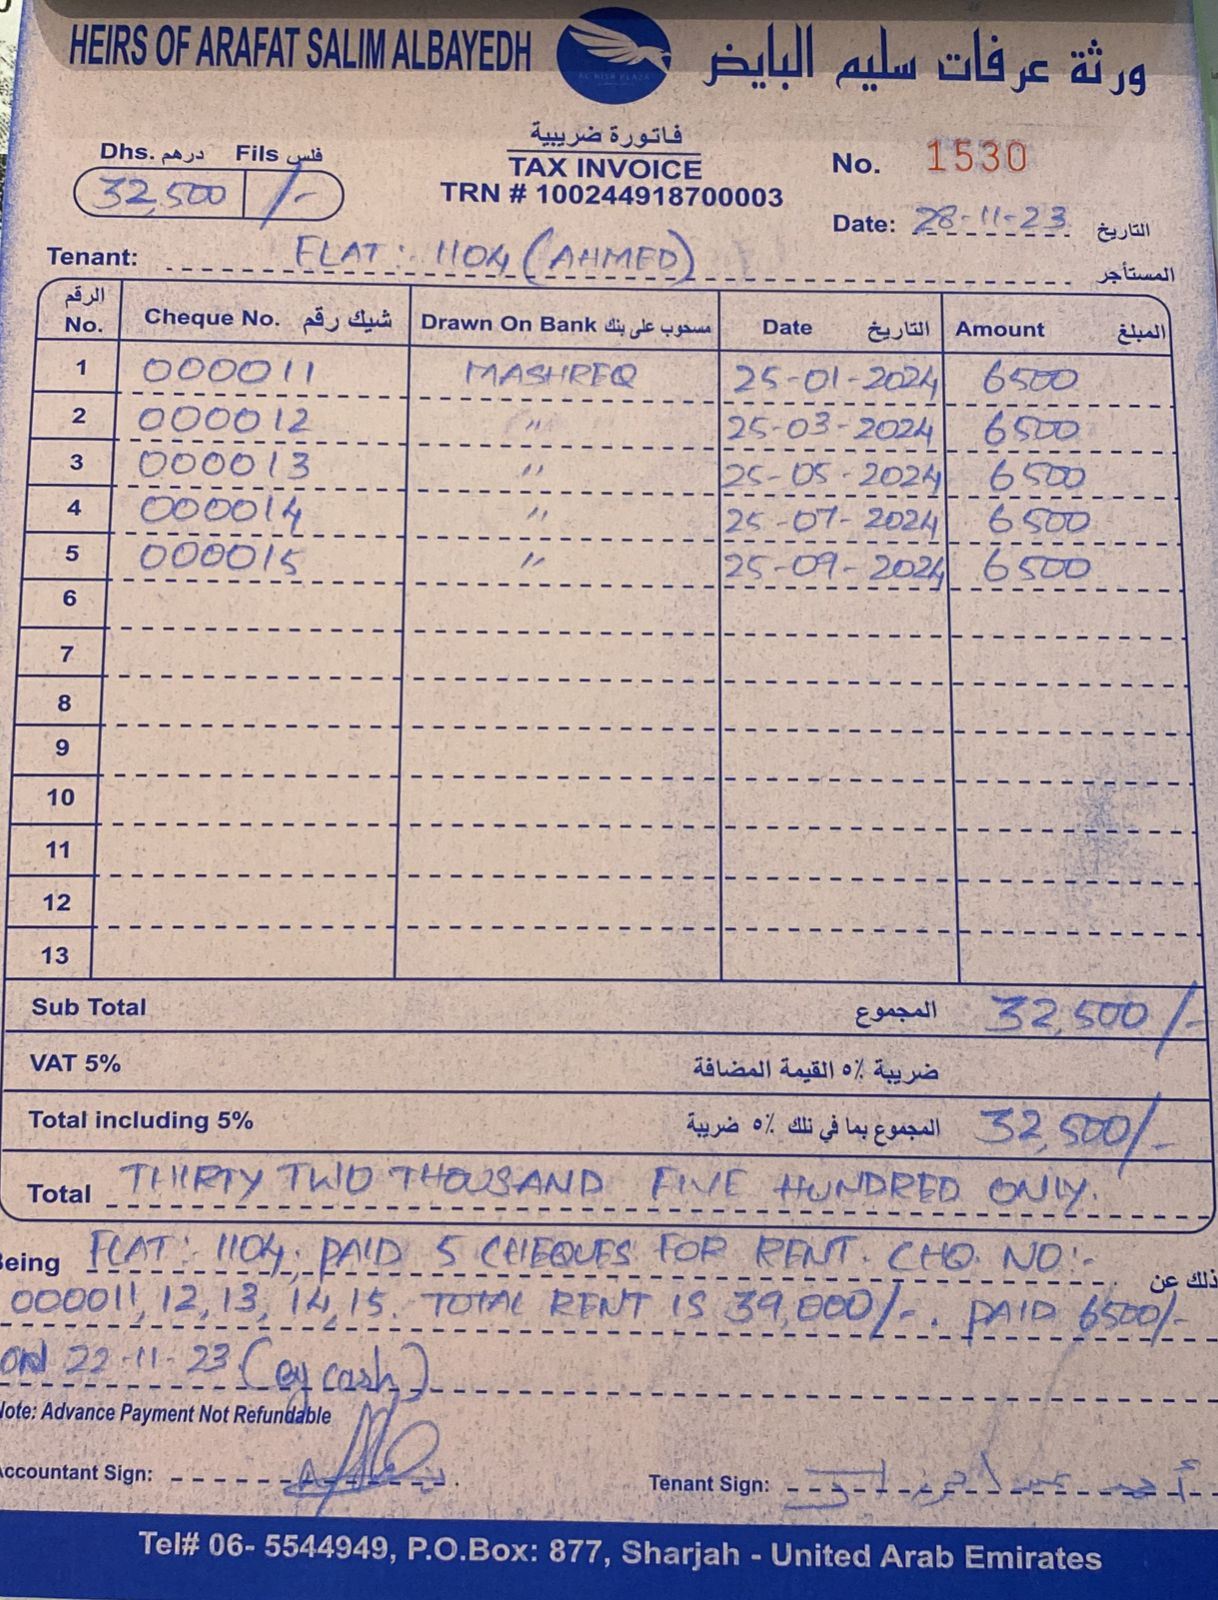 HEIRS OF ARAFAT SALIM ALBAYEDH
AL NISR PLAZA
ورثة عرفات سليم البايض
Dhs. درهم Fils فلس
32,500 /-
فاتورة ضريبية
TAX INVOICE
TRN # 100244918700003
No. 1530
Date: 28-11-23 التاريخ
Tenant: FLAT: 1104 (AHMED) المستأجر
الرقم No. Cheque No. شيك رقم Drawn On Bank مسحوب على بنك Date التاريخ Amount المبلغ
1 000011 MASHREQ 25-01-2024 6500
2 000012 " 25-03-2024 6500
3 000013 " 25-05-2024 6500
4 000014 " 25-07-2024 6500
5 000015 " 25-09-2024 6500
6
7
8
9
10
11
12
13
Sub Total المجموع 32,500/-
VAT 5% ضريبة ٥٪ القيمة المضافة
Total including 5% المجموع بما في نلك ٥٪ ضريبة 32,500/-
Total THIRTY TWO THOUSAND FIVE HUNDRED ONLY.
Being FLAT: 1104. PAID 5 CHEQUES FOR RENT. CHQ. NO:- ذلك عن
000011, 12, 13, 14, 15. TOTAL RENT IS 39,000/-. PAID 6500/-
ON 22-11-23 (By cash)
Note: Advance Payment Not Refundable
Accountant Sign:
Tenant Sign:
Tel# 06- 5544949, P.O.Box: 877, Sharjah - United Arab Emirates